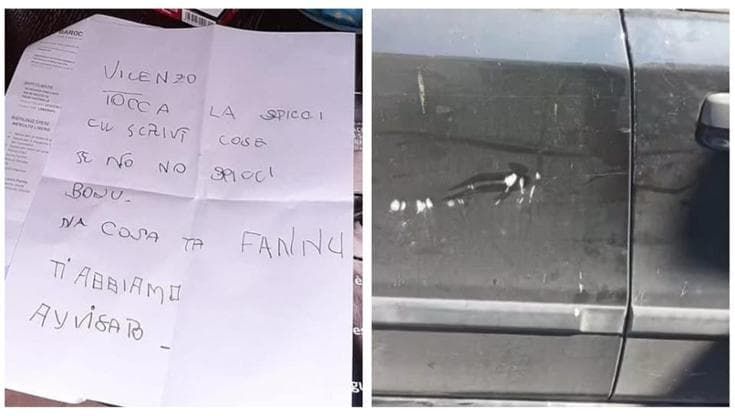 VICENZO
TOCCA A LA SPICCI
CU SCRIVI COSE
SE NO NO SPICCI
BONU.
NA COSA TA FANNU
TI ABBIAMO
AVVISATO -